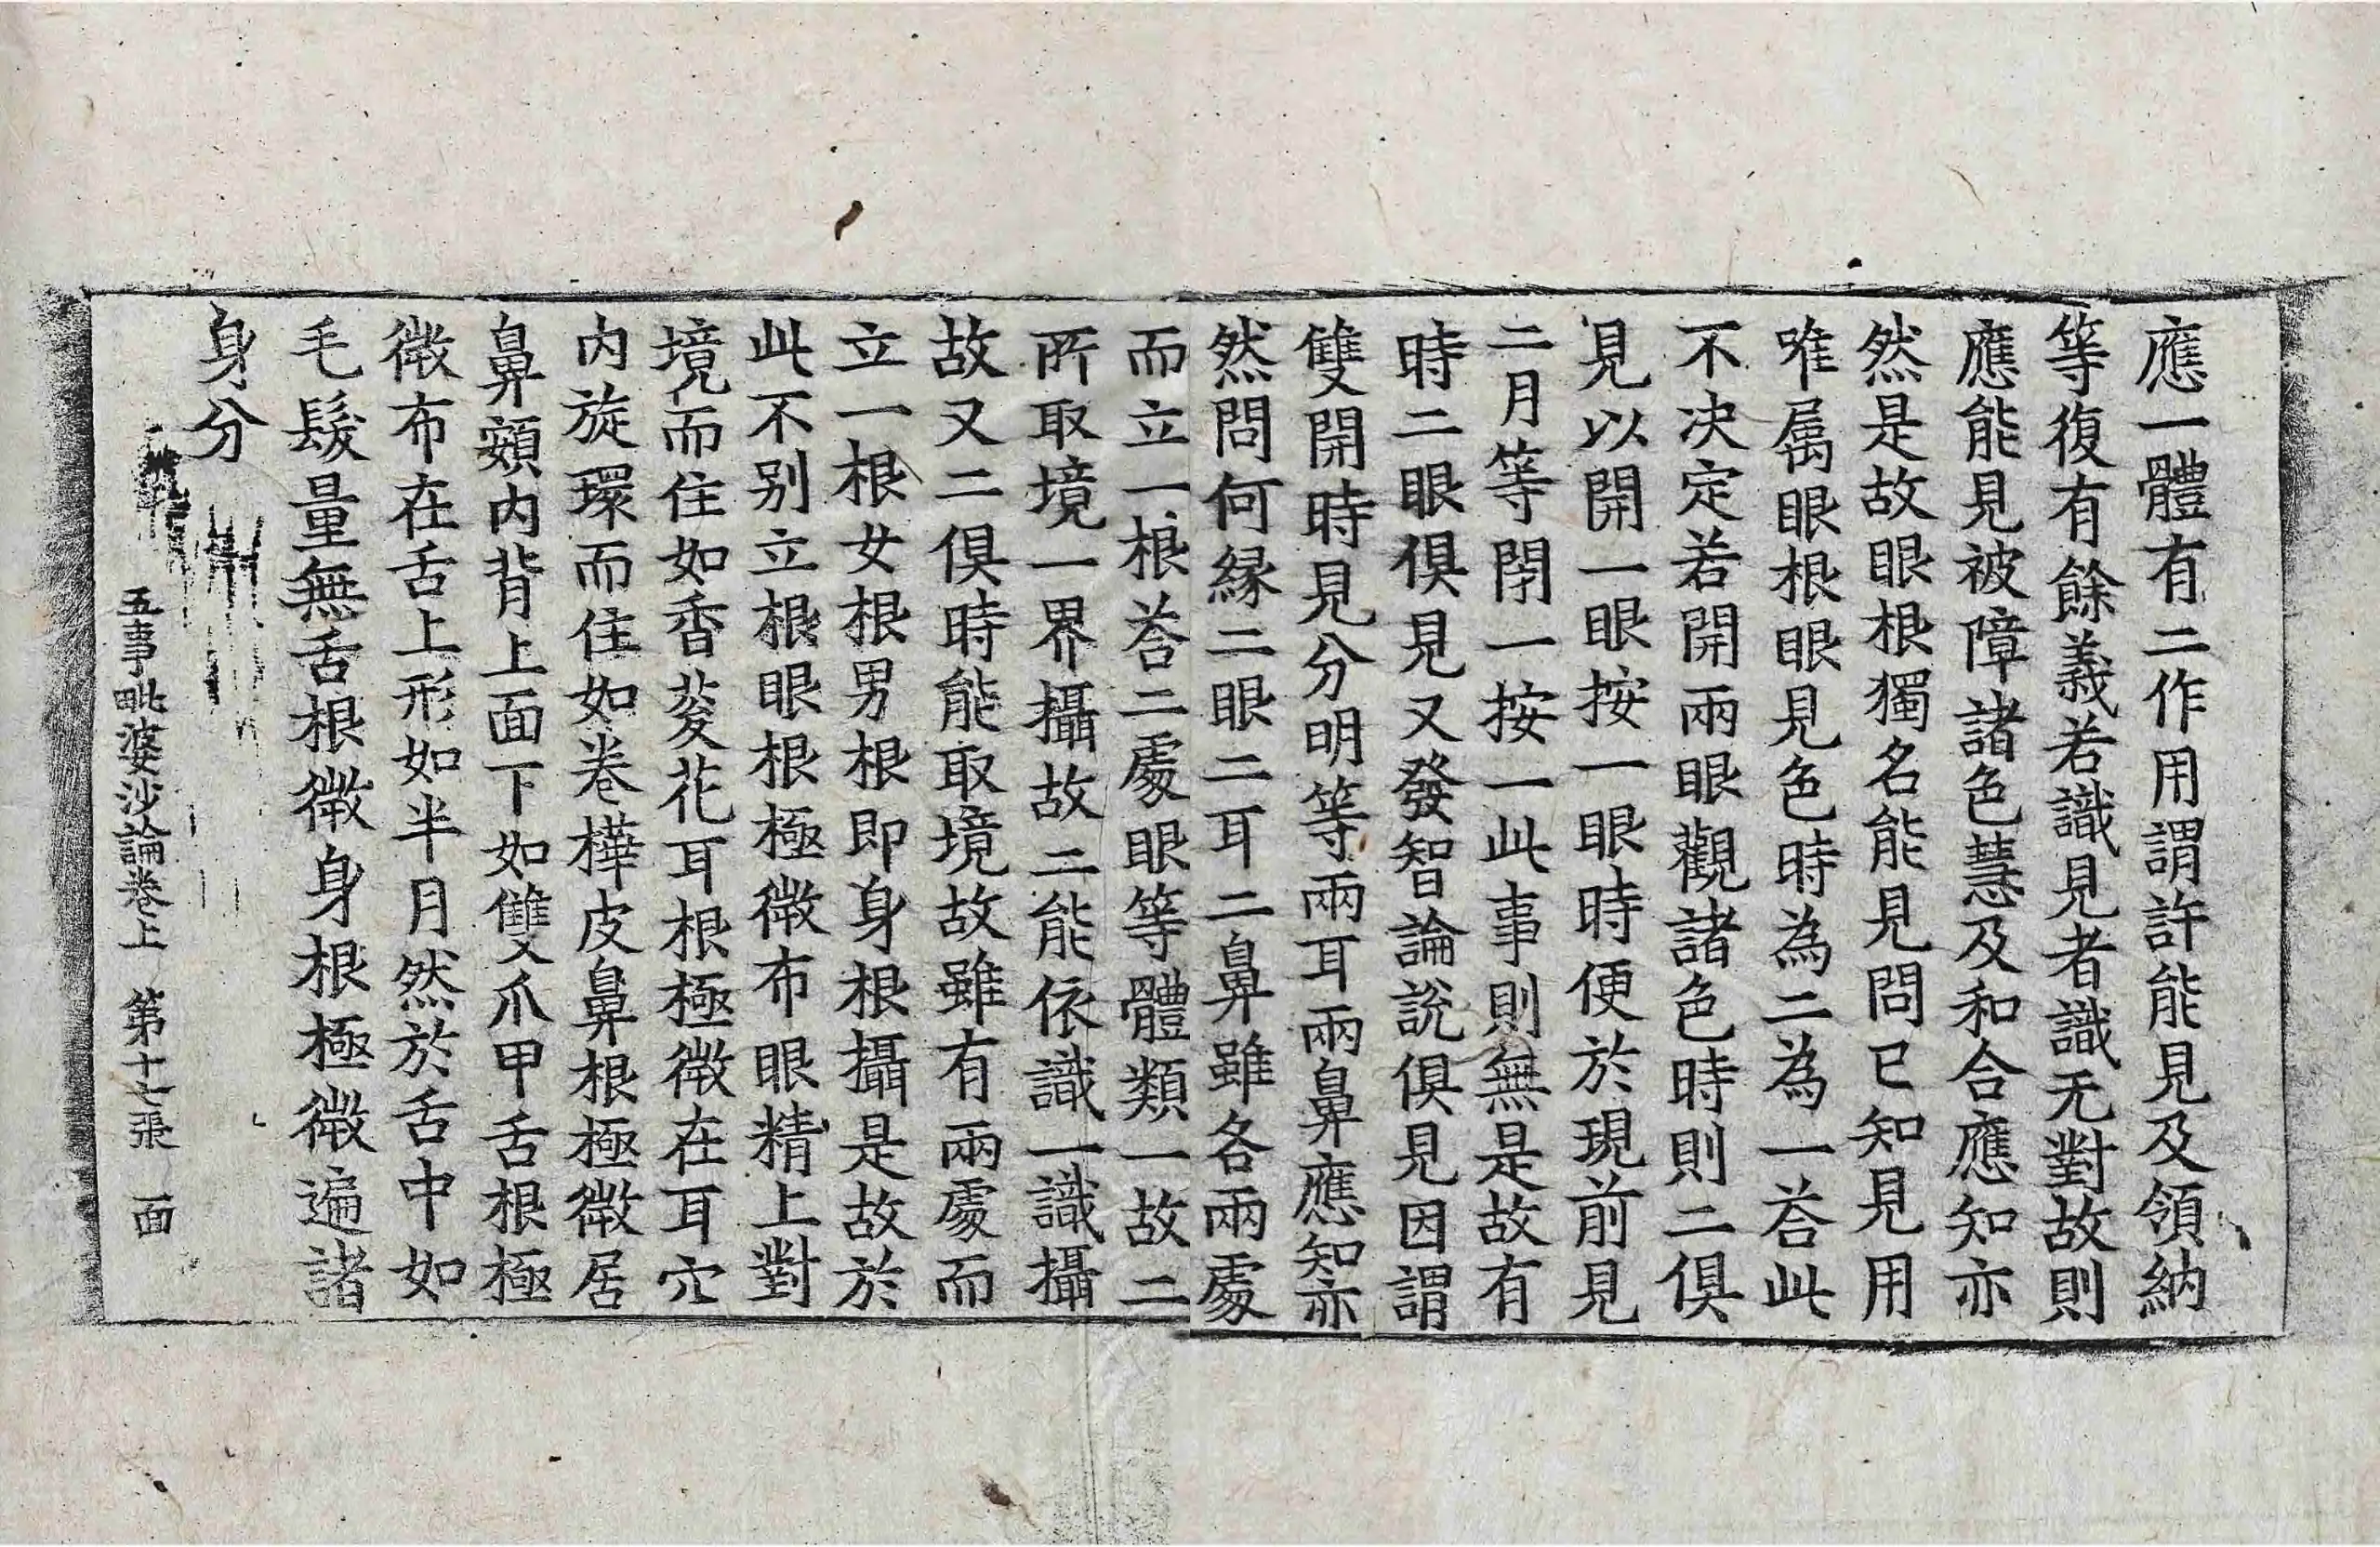 應一體有二作用謂許能見及領納
等復有餘義若識見者識无對故則
應能見被障諸色慧及和合應知亦
然是故眼根獨名能見問已知見用
唯屬眼根眼見色時為二為一荅此
不决定若開兩眼觀諸色時則二俱
見以開一眼按一眼時便於現前見
二月等閉一按一此事則無是故有
時二眼俱見又發智論說俱見因謂
雙開時見分明等兩耳兩鼻應知亦
然問何縁二眼二耳二鼻雖各兩處
而立一根荅二處眼等體類一故二
所取境一界攝故二能依識一識攝
故又二俱時能取境故雖有兩處而
立一根女根男根即身根攝是故於
此不别立根眼根極微布眼精上對
境而住如香荾花耳根極微在耳穴
内旋環而住如卷樺皮鼻根極微居
鼻頞内背上面下如雙爪甲舌根極
微布在舌上形如半月然於舌中如
毛髮量無舌根微身根極微遍諸
身分
五事毗婆沙論卷上 第十七張 面